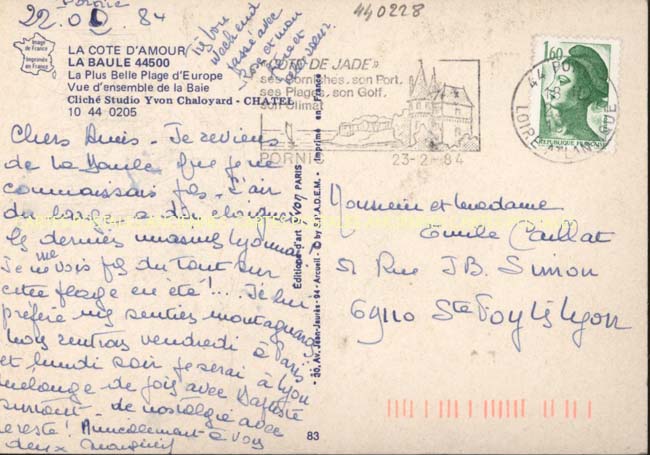 Pornic
22.02.84
440228
Très bon
week end
passé avec
Rose et mon
frère et
Image
de France
Imprimée
en France
LA COTE D'AMOUR
LA BAULE 44500
La Plus Belle Plage d'Europe
Vue d'ensemble de la Baie
Cliché Studio Yvon Chaloyard - CHATEL
10 44 0205
« COTE DE JADE »
ses Corniches, son Port,
ses Plages, son Golf,
son Climat
PORNIC 23-2-84
1,60
REPUBLIQUE FRANÇAISE
44 PORNIC
LOIRE-ATLANTIQUE
Chers Amis - Je reviens
de la Baule que je ne
connaissais pas - L'air
du large a dû éloigner
les derniers miasmes lyonnais
Je ne me vois pas du tout sur
cette plage en été !... Je lui
préfère mes sentiers montagnards
Nous rentrons vendredi à Paris
et lundi soir je serai à Lyon
mélange de joie avec Baptiste
surtout - de nostalgie avec
le reste ! Amicalement à vous
deux
Editions d'art Yvon PARIS
30, Av. Jean-Jaurès - 94 - Arcueil - © by S.P.A.D.E.M. - Imprimé en France
83
Monsieur et Madame
Emile Caillat
51 Rue J.B. Simon
69110 Ste Foy lès Lyon